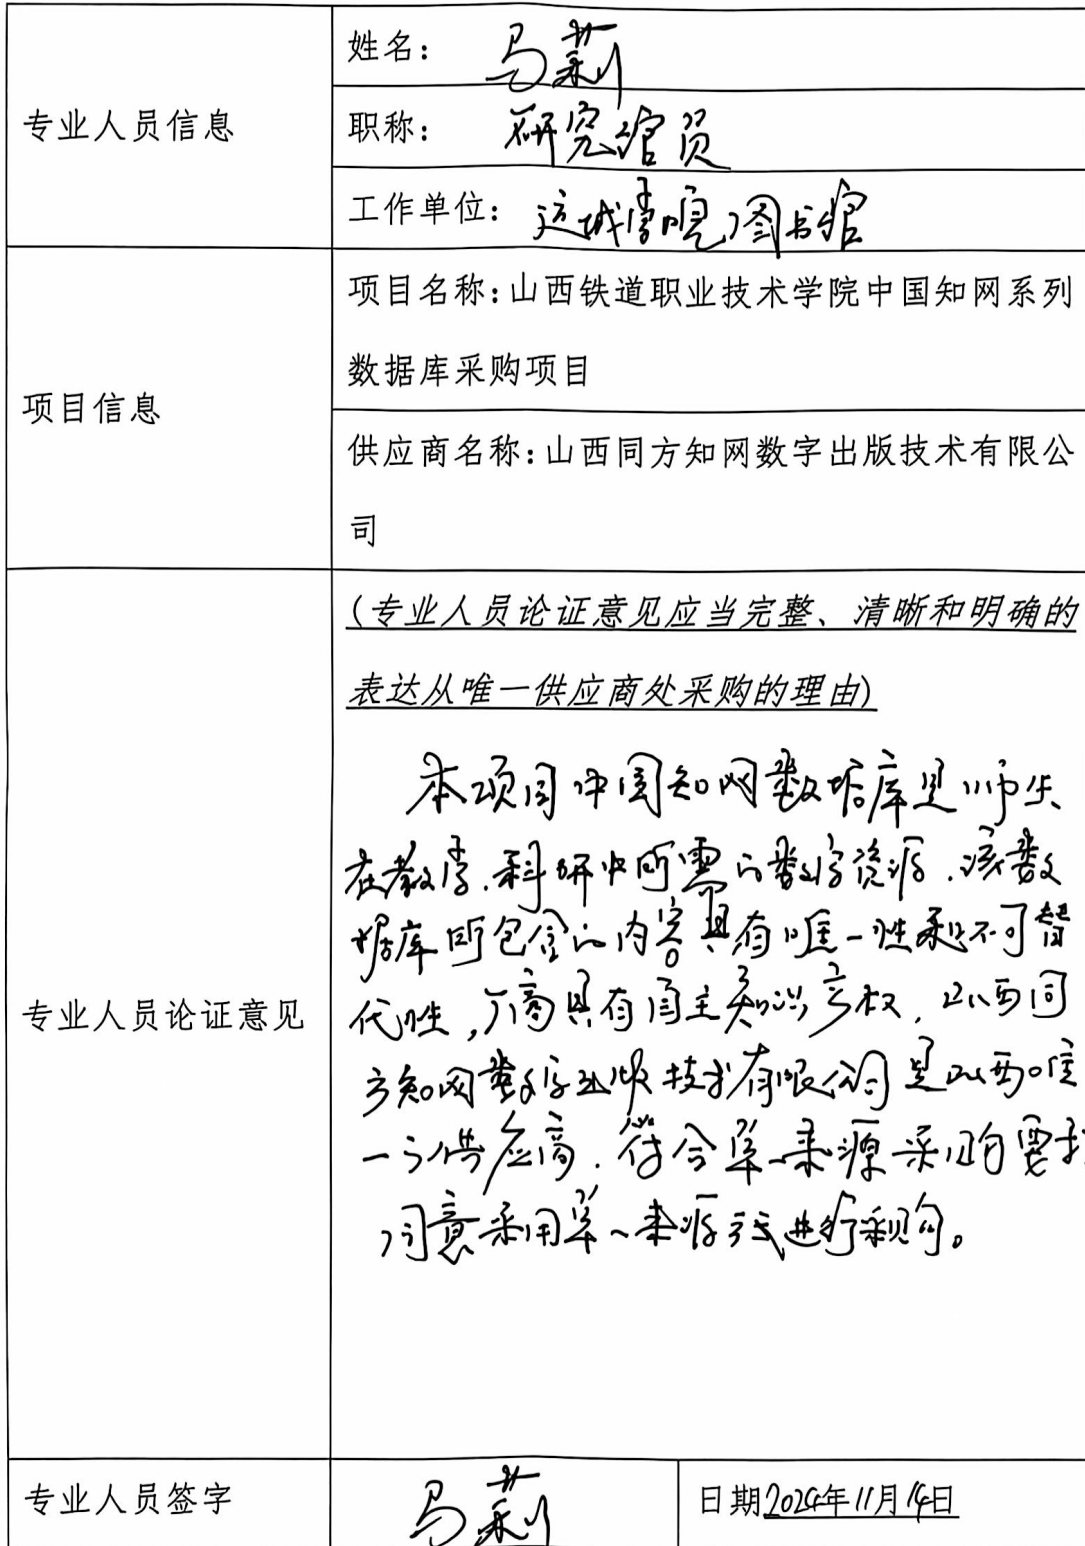 专业人员信息
姓名：马莉
职称：研究馆员
工作单位：运城学院图书馆
项目信息
项目名称：山西铁道职业技术学院中国知网系列
数据库采购项目
供应商名称：山西同方知网数字出版技术有限公
司
专业人员论证意见
（专业人员论证意见应当完整、清晰和明确的
表达从唯一供应商处采购的理由）
本项目中国知网数据库是师生
在教学、科研中所需的数字资源，该数
据库所包含的内容具有唯一性和不可替
代性，厂商具有自主知识产权，山西同
方知网数字出版技术有限公司是山西唯
一的供应商，符合单一来源采购要求
同意采用单一来源方式进行采购。
专业人员签字
马莉
日期2024年11月14日